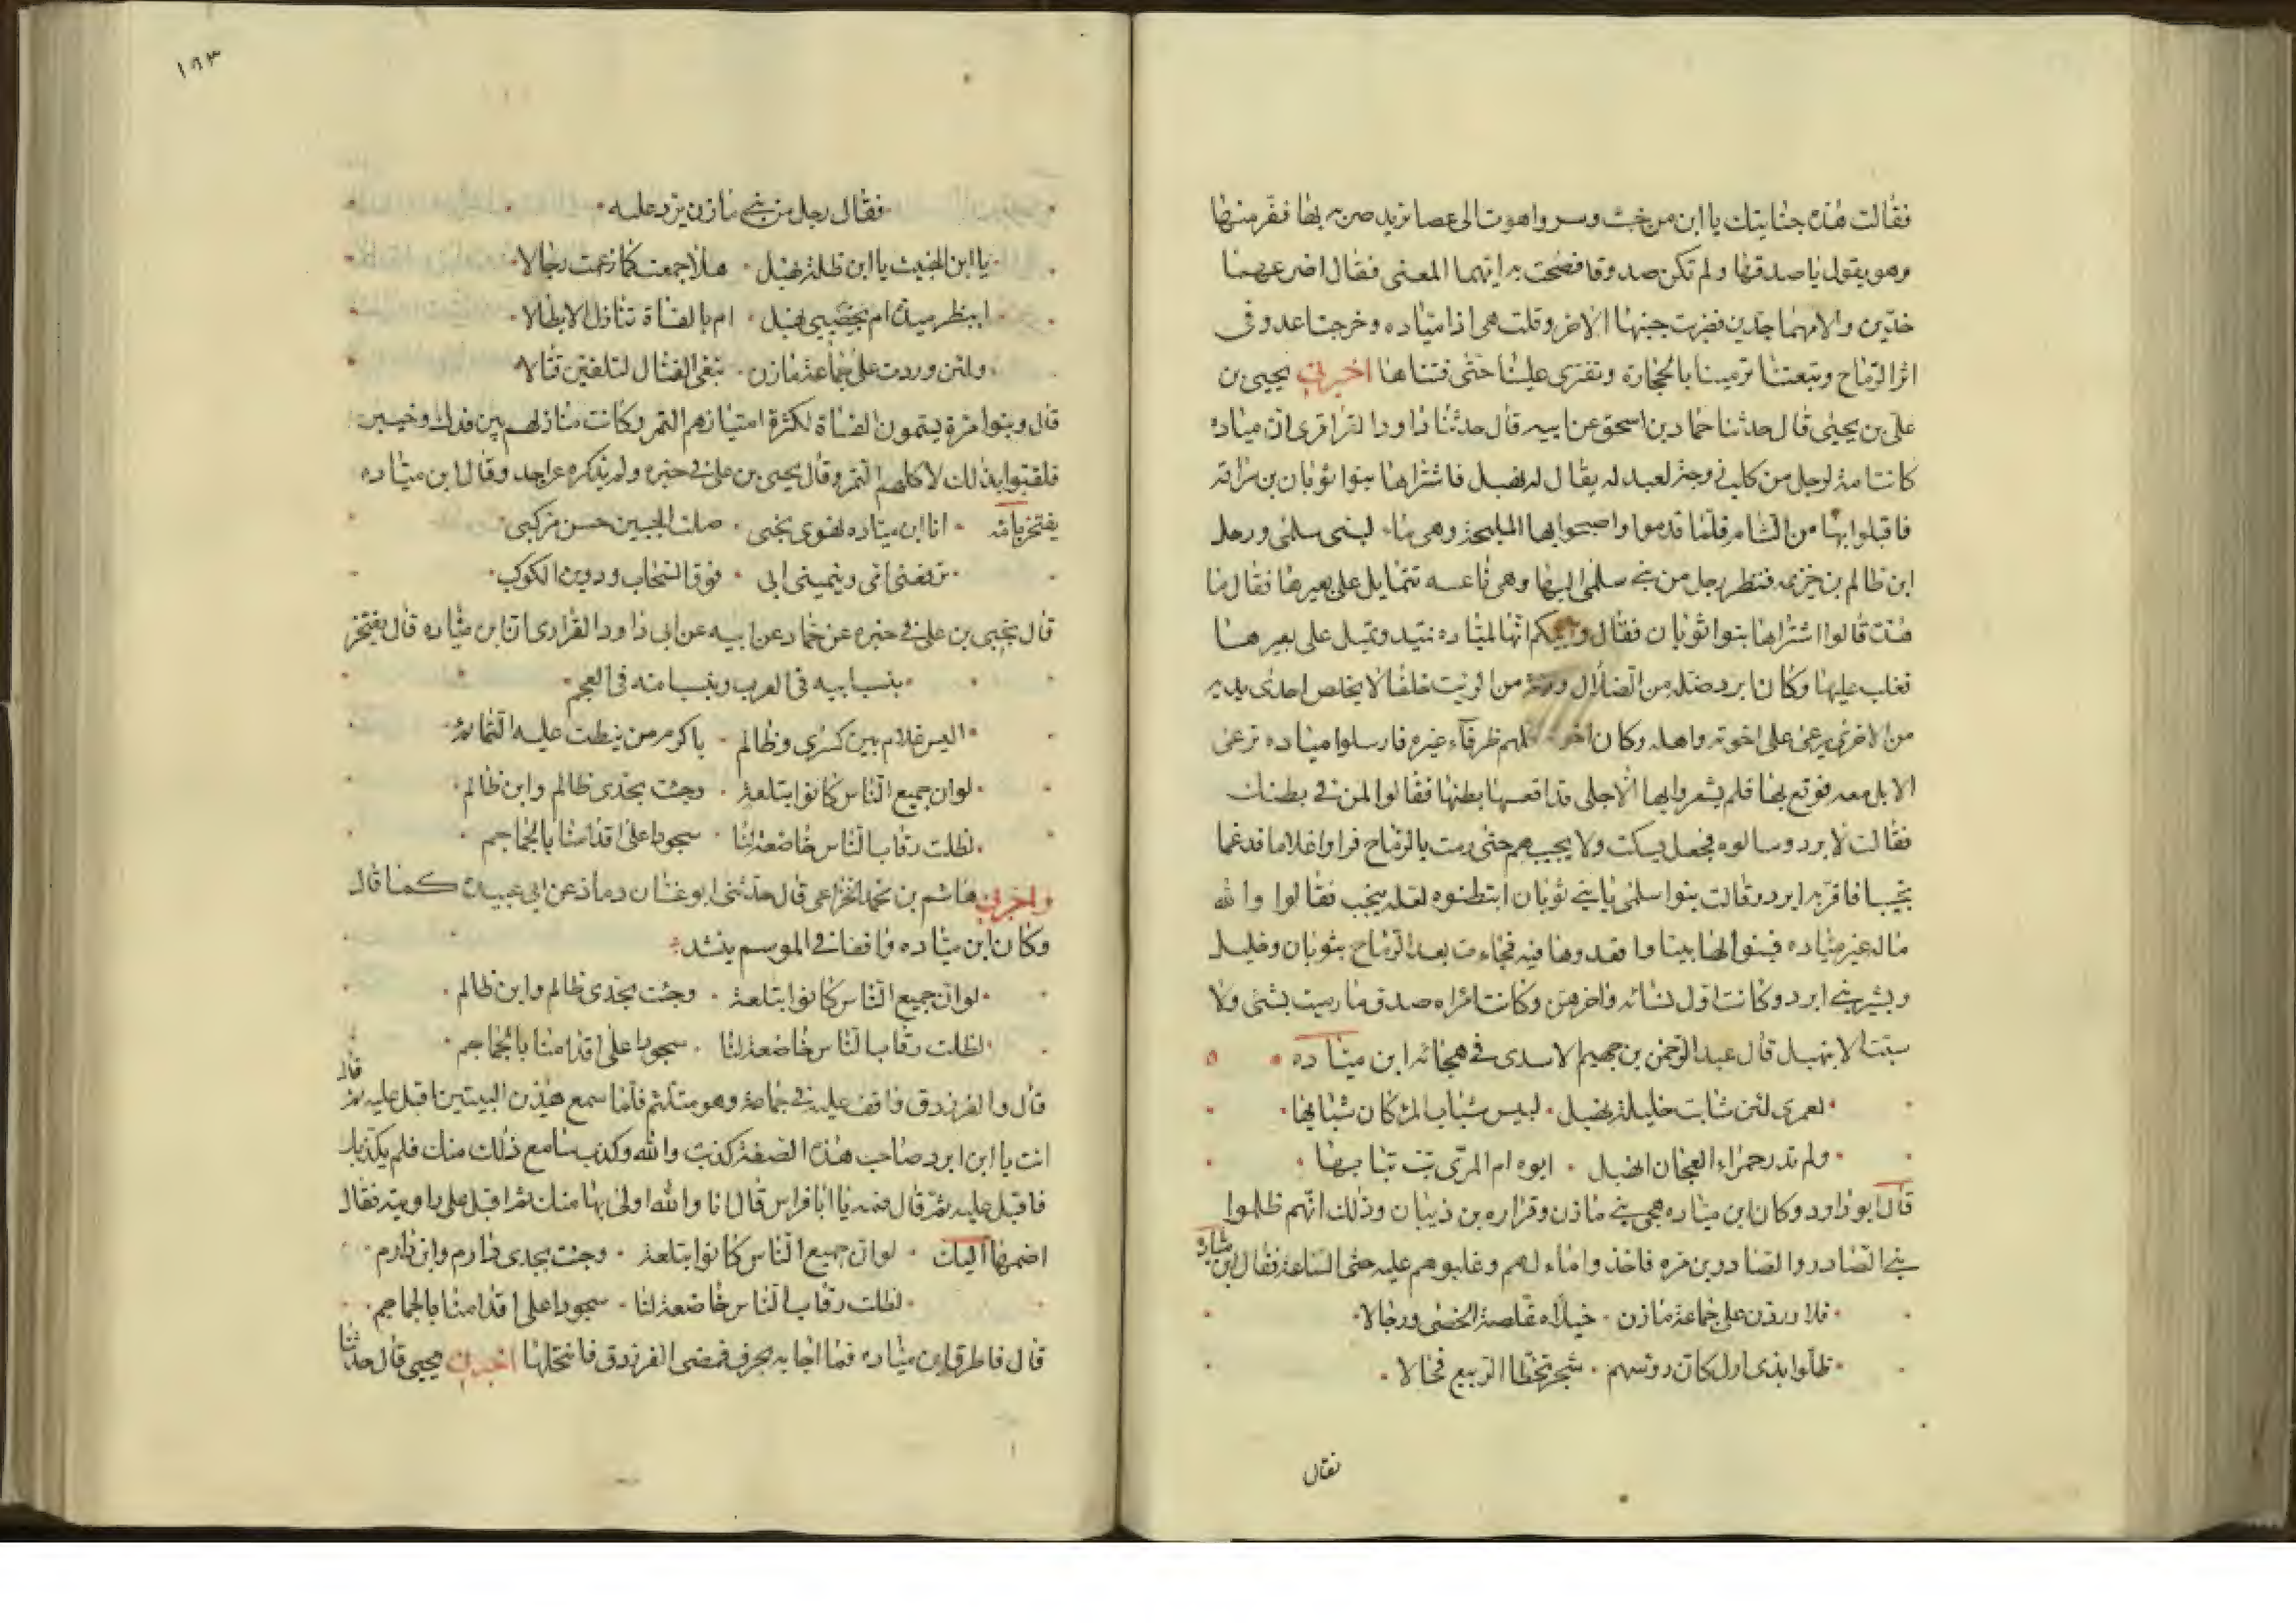 فقالت هذه جنايتك يا ابن من خبث وسر واهوت الى عصا تريد ضربه بها ففر منها
وهو يقول يا صدقها ولم تكن صدوقا فصحت به ايهما المعنى فقال اضرعهما
خدين والامهما جدين فضربت جنبها الاخر وقلت هى اذا مياده وخرجنا عدو فى
اثر الرماح وتبعتنا ترمينا بالحجارة وتفترى علينا حتى فتناها اخبرنى يحيى بن
على بن يحيى قال حدثنا حماد بن اسحق عن ابيه قال حدثنا داود الفزارى ان مياده
كانت امة لرجل من كلب زوجة لعبد له يقال له نهبل فاشتراها بنوا ثوبان بن سراقة
فاقبلوا بها من الشام فلما قدموا واصبحوا بها المليحة وهى ماء لبنى سلمى ورحل
ابن ظالم بن خزيمه فنظر رجل من بنى سلمى اليها وهى ناعسه تتمايل على بعيرها فقال ما
هذه قالوا اشتراها بنوا ثوبان فقال وابيكم انها لمياده تميد وتميل على بعيرها
فغلب عليها وكان ابرد ضلة من الضلال ورثة من الرثث خلفا لا يخلص احدى يديه
من الاخرى يرعى على اخوته واهله وكان اخوته كلهم ظرفآء غيره فارسلوا مياده ترعى
الابل معه فوقع بها فلم يشعروا بها الا جلى قد اقعسها بطنها فقالوا لمن فى بطنك
فقالت لابرد وسالوه فجعل يسكت ولا يجيبهم حتى رمت بالرماح فراوا غلاما فدغما
نجيبا فاقر به ابرد وقالت بنوا سلمى يا بنى ثوبان ابتطنوه لعله ينجب فقالوا والله
ماله غير مياده فبنوا لها بيتا واقعدوها فيه فجاءت بعد الرماح بثوبان وخليل
وبشير بنى ابرد وكانت اول نسائه واخرهن وكانت امراه صدق ما رميت بشئ ولا
سبت الا بنهبل قال عبد الرحمن بن جهيم الاسدى فى هجائه ابن مياده
لعمرى لئن شابت حليلة نهبل لبيس شباب المرء كان شبابها
ولم تدر حمراء العجان انهبل ابوه ام المرى تب تبابها
قال ابو داود وكان ابن مياده هجى بنى مازن وفزاره بن ذبيان وذلك انهم ظلموا
بنى الصادر والصادر بن مره فاخذوا ماء لهم وغلبوهم عليه حتى الساعة فقال ابن مياده
فلاوردن على جماعة مازن خيلا مقلصة الخصى ورجالا
ظلوا بذى ارل كان روسهم شجر تخطاه الربيع فحالا
فقال
١٩٣
فقال رجل من بنى مازن يرد عليه
يا ابن الخبيث يا ابن ظلة نهبل هلا جمعت كما زعمت رجالا
ابظر ميدة ام بخصيى نهبل ام بالفساة تنازل الابطالا
ولئن وردت على جماعة مازن تبغى القتال لتلقين قتالا
قال وبنوا مرة يسمون الفساة لكثرة امتيازهم التمر وكانت منازلهم بين فدك وخيبر
فلقبوا بذلك لاكلهم التمر وقال يحيى بن على فى خبره ولم يذكره عن احد وقال ابن مياده
يفتخر بامه انا ابن مياده تهوى نجبى صلت الجبين حسن مركبى
ترفعنى امى وينمينى ابى فوق السحاب ودوين الكوكب
قال يحيى بن على فى خبره عن حماد عن ابيه عن ابى داود الفزارى ان ابن مياده قال يفتخر
بنسب ابيه فى العرب ونسب امه فى العجم
اليس غلام بين كسرى وظالم باكرم من نيطت عليه التمائم
لو ان جميع الناس كانوا بتلعة وجئت بجدى ظالم وابن ظالم
لظلت رقاب الناس خاضعة لنا سجودا على اقدامنا بالجماجم
واخبرنى هاشم بن محمد الخزاعى قال حدثنى ابو غسان دماذ عن ابى عبيدة كما قال
وكان ابن مياده واقفا فى الموسم ينشد
لو ان جميع الناس كانوا بتلعة وجئت بجدى ظالم وابن ظالم
لظلت رقاب الناس خاضعة لنا سجودا على اقدامنا بالجماجم
قال والفرزدق واقف عليه فى جماعة وهو متلثم فلما سمع هذين البيتين اقبل عليه ثم قال
انت يا ابن ابرد صاحب هذه الصفة كذبت والله وكذب سامع ذلك منك فلم يكذبك
فاقبل عليه ثم قال فمه يا ابا فراس قال انا والله اولى بها منك ثم اقبل على راويته فقال
اضمها اليك لو ان جميع الناس كانوا بتلعة وجئت بجدى دارم وابن دارم
لظلت رقاب الناس خاضعة لنا سجودا على اقدامنا بالجماجم
قال فاطرق ابن مياده فما اجابه بحرف فمضى الفرزدق فانتحلها اخبرنى يحيى قال حدثنا